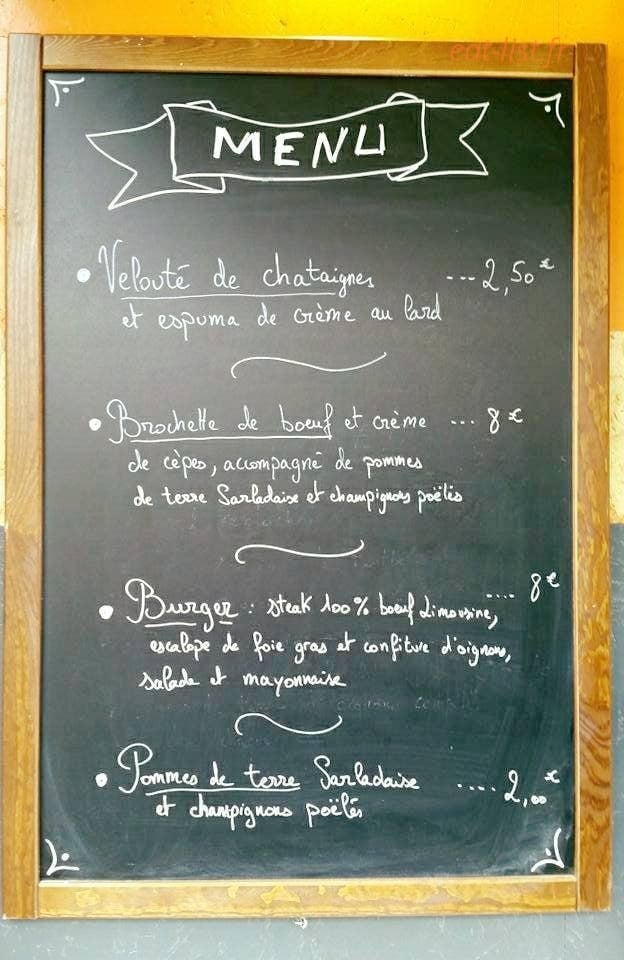 eat-list.fr
MENU
• Velouté de chataignes --- 2,50€
et espuma de crème au lard
• Brochette de boeuf et crème --- 8€
de cèpes, accompagné de pommes
de terre Sarladaise et champignons poëlés
• Burger : steak 100% boeuf Limousine, .... 8€
escalope de foie gras et confiture d'oignons,
salade et mayonnaise
• Pommes de terre Sarladaise .... 2,00€
et champignons poëlés